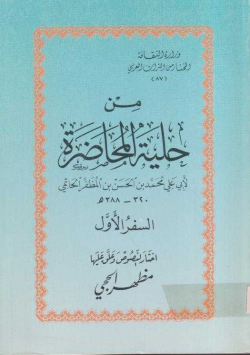 وزارة الثقافة
المختار من التراث العربي
(٨٧)
من
حلية المحاضرة
لأبي علي محمد بن الحسن بن المظفر الحاتمي
٣٢٠ - ٣٨٨ هـ
السفر الأول
اختار النصوص وعلق عليها
مظهر الحجي